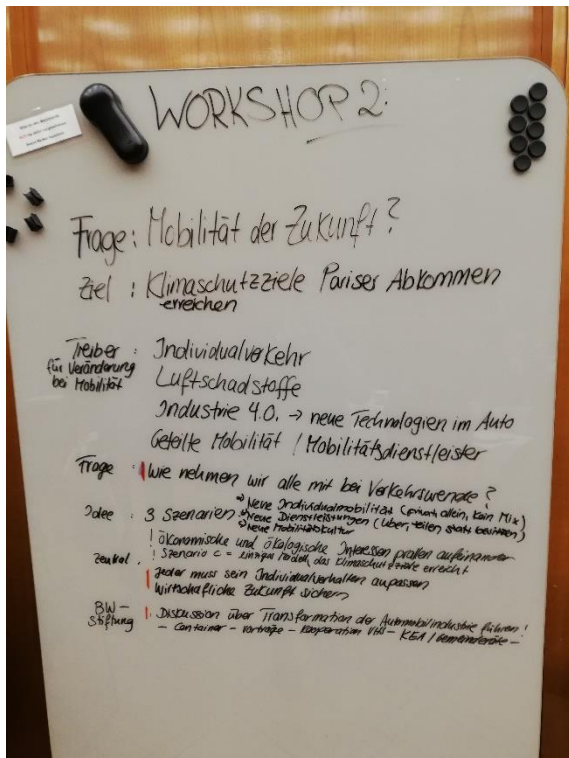 WORKSHOP 2:
Frage: Mobilität der Zukunft?
Ziel : Klimaschutzziele Pariser Abkommen
erreichen
Treiber : Individualverkehr
für Veränderung
bei Mobilität
Luftschadstoffe
Industrie 4.0. → neue Technologien im Auto
Geteilte Mobilität / Mobilitätsdienstleister
Frage : Wie nehmen wir alle mit bei Verkehrswende?
Idee : 3 Szenarien → Neue Individualmobilität (privat, allein, kein Mix)
→ Neue Dienstleistungen (Uber, teilen statt besitzen)
→ Neue Mobilitätskultur
! ökonomische und ökologische Interessen prallen aufeinander
! Szenario C = einziges Modell, das Klimaschutzziele erreicht
zentral : Jeder muss sein Individualverhalten anpassen
Wirtschaftliche Zukunft sichern
BW-
Stiftung ! : Diskussion über Transformation der Automobilindustrie führen!
- Container - Vorträge - Kooperation VHS - KEA / Gemeinderäte -